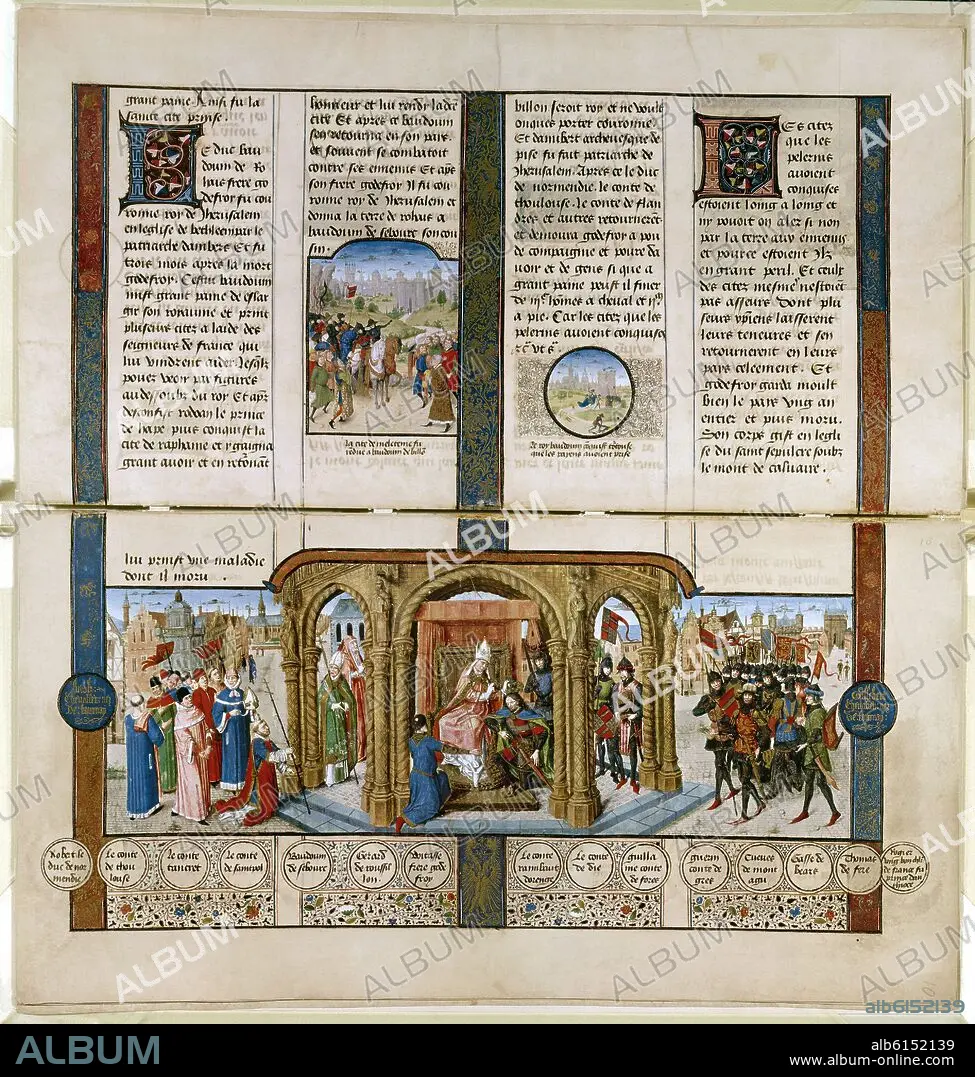 grant paine. Ainsi fu la
sainte cite prinse.
Le duc bau
douin de Ro
hais frere go
defroy fu cou
ronne roy de Jherusalem
en leglise de bethleem par le
patriarche dambert Et fu
trois mois apres la mort
godefroy. Cestui baudouin
mist grant paine de eslar
gir son royaume et print
pluseurs citez a laide des
seigneurs de france qui
lui vindrent aider lesqlz
pouez veoir par figures
audessoubz du roy Et apz
desconfist rodoan le prince
de hape puis conquist la
cite de raphanie et y gaigna
grant avoir et en retornant
honneur et lui rendi ladicte
cite Et apres ce baudouin
sen retourna en son pais
et souvent se combatoit
contre ses ennemis Et apz
son frere godefroy Il fu cou
ronne roy de Jherusalem et
donna la terre de rohais a
baudouin de sebourc son cou
sin.
la cite de meleteme fu
rendue a baudouin de
billon seroit roy et ne voult
oncques porter couronne.
Et dambert archevesque de
pise fu fait patriarche de
Jherusalem. Apres ce le duc
de normendie. le conte de
thoulouse. le conte de flan
dres et autres retournerent
et demoura godefroy a pou
de compaignie et povre da
voir et de gens si que a
grant paine peust il finer
de hommes a cheval et
a pie. Car les citez que les
pelerins avoient conquises
le roy baudouin
que les payens avoient prise
Les citez
que les
pelerins
avoient
conquises
estoient loing a loing et
ny pouoit on aler si non
par la terre aux ennemis
et pource estoient Ilz
en grant peril. Et ceulx
des citez mesme nestoient
pas asseurs dont plu
seurs xpiens laisserent
leurs tenures et sen
retournerent en leurs
pays celeement. Et
godefroy garda moult
bien le pays ung an
entier et puis moru.
Son corps gist en legli
se du saint sepulcre soubz
le mont de calvaire.
lui prinst une maladie
dont il moru.
Robert le
duc de nor
mendie
Le conte
de thou
louse
Le conte
tancret
Le conte
de saintpol
Baudouin
de sebourc
Gerard
de roussil
lon.
Wistasse
frere gode
froy
Le conte
rambaut
dorenge
Le conte
de die
guilla
me conte
de forez
guerin
conte de
gres
Cueues
de mont
agu
Gasse de
bears
Thomas
de fere
ALBUM
alb6152139
ALBUM
alb6152139
www.album-online.com